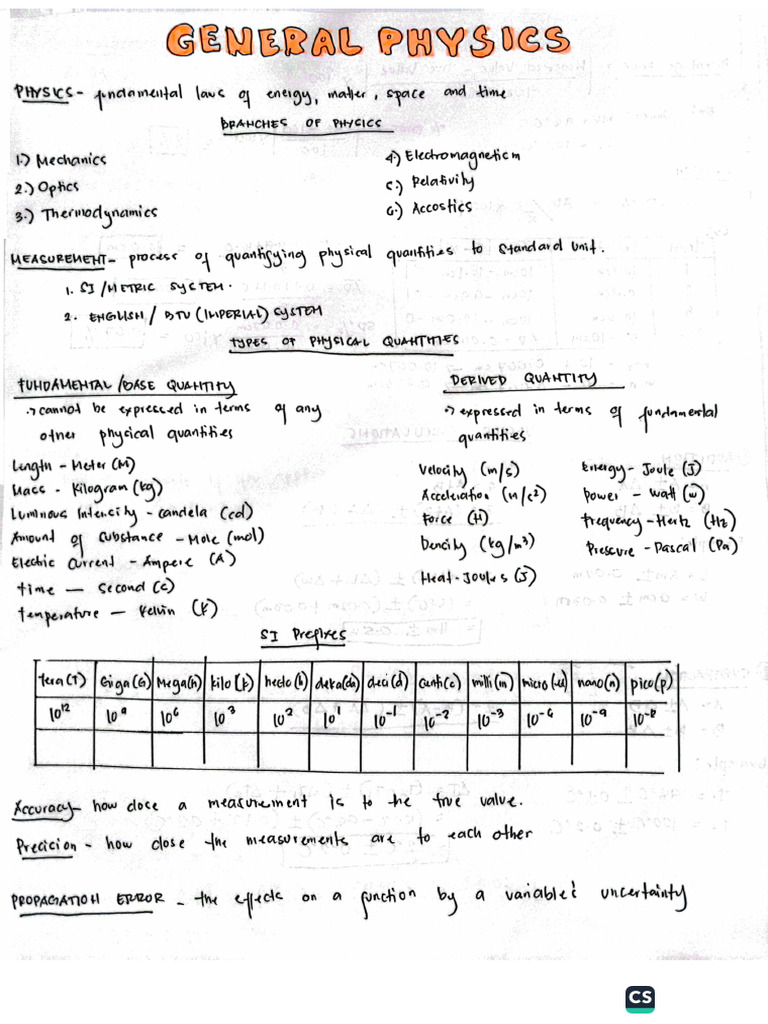 GENERAL PHYSICS
PHYSICS - fundamental laws of energy, matter, space and time
BRANCHES OF PHYSICS
1.) Mechanics
2.) Optics
3.) Thermodynamics
4.) Electromagnetism
5.) Relativity
6.) Accostics
MEASUREMENT - process of quantifying physical quantities to standard unit.
1. SI/METRIC SYSTEM.
2. ENGLISH / BTU (IMPERIAL) SYSTEM
TYPES OF PHYSICAL QUANTITIES
FUNDAMENTAL /BASE QUANTITY
-> cannot be expressed in terms of any
other physical quantities
Length - Meter (M)
Mass - Kilogram (kg)
Luminous Intensity - candela (cd)
Amount of substance - Mole (mol)
Electric Current - Ampere (A)
time — second (s)
temperature — Kelvin (K)
DERIVED QUANTITY
-> expressed in terms of fundamental
quantities
Velocity (m/s)
Acceleration (m/s²)
Force (N)
Density (kg/m³)
Heat - Joules (J)
Energy - Joule (J)
Power - Watt (w)
Frequency - Hertz (Hz)
Pressure - Pascal (Pa)
SI Prefixes
tera (T) Giga (G) Mega (M) kilo (k) hecto (h) deka (da) deci (d) centi (c) milli (m) micro (u) nano (n) pico (p)
10¹² 10⁹ 10⁶ 10³ 10² 10¹ 10⁻¹ 10⁻² 10⁻³ 10⁻⁶ 10⁻⁹ 10⁻¹²
Accuracy - how close a measurement is to the true value.
Precision - how close the measurements are to each other
PROPAGATION ERROR - the effects on a function by a variable's uncertainty
CS